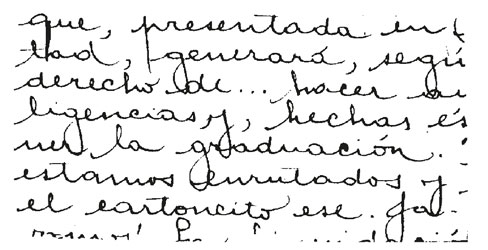 que, presentada en
tad, generará, segú
derecho de... hacer
ligencias, y, hechas és
ner la graduación.
estamos enrutados y
el cartoncito ese. Ja-